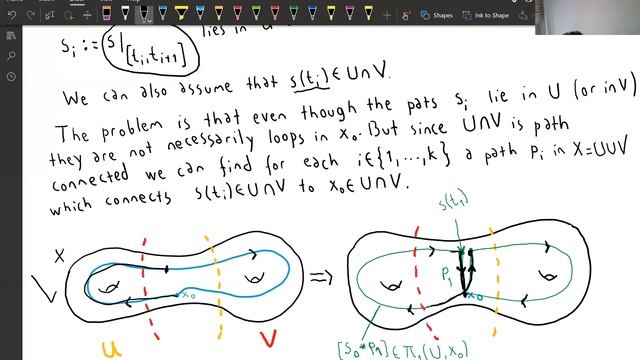 Draw
Shapes
Ink to Shape
Sᵢ := S|[tᵢ,tᵢ₊₁] lies in U
We can also assume that s(tᵢ) ∈ U∩V.
The problem is that even though the pats Sᵢ lie in U (or in V)
they are not necessarily loops in x₀. But since U∩V is path
connected we can find for each i∈{1,...,k} a path Pᵢ in X=U∪V
which connects s(tᵢ)∈U∩V to x₀∈U∩V.
X
x₀
U
V
⇒
s(t₁)
P₁
x₀
[S₀*P₁]∈π₁(U,x₀)